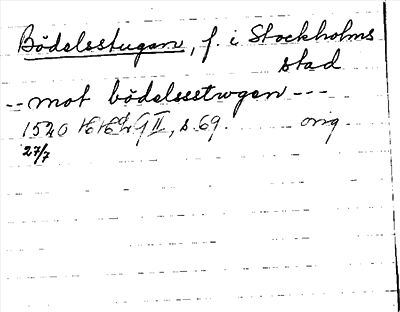 Bödelsstugan, f. i Stockholms
stad
-- mot bödelsstwgen ---
1540 II, s. 69. orig
27/7